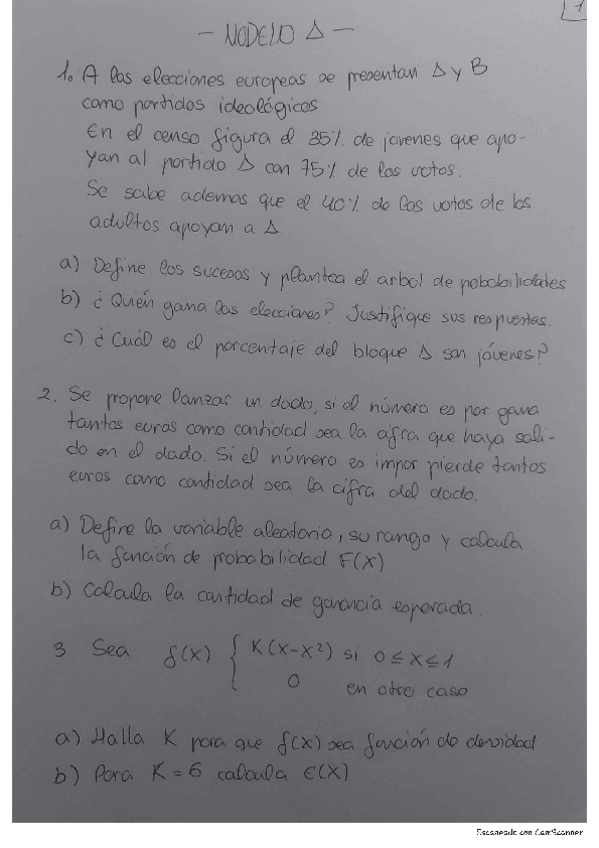 1
- MODELO A -
1. A las elecciones europeas se presentan A y B
como partidos ideológicos
En el censo figura el 35% de jovenes que apo-
yan al partido A con 75% de los votos.
Se sabe ademas que el 40% de los votos de los
adultos apoyan a A.
a) Define los sucesos y plantea el arbol de probabilidades
b) ¿Quién gana las elecciones? Justifique sus respuestas.
c) ¿Cuál es el porcentaje del bloque A son jóvenes?
2. Se propone lanzar un dado, si el número es par gana
tantos euros como cantidad sea la cifra que haya sali-
do en el dado. Si el número es impar pierde tantos
euros como cantidad sea la cifra del dado.
a) Define la variable aleatoria, su rango y calcula
la función de probabilidad F(X)
b) Calcula la cantidad de ganancia esperada.
3 Sea f(X) { K(X-X²) si 0≤X≤1
0 en otro caso
a) Halla K para que f(X) sea función de densidad
b) Para K=6 calcula E(X)
Escaneado con CamScanner